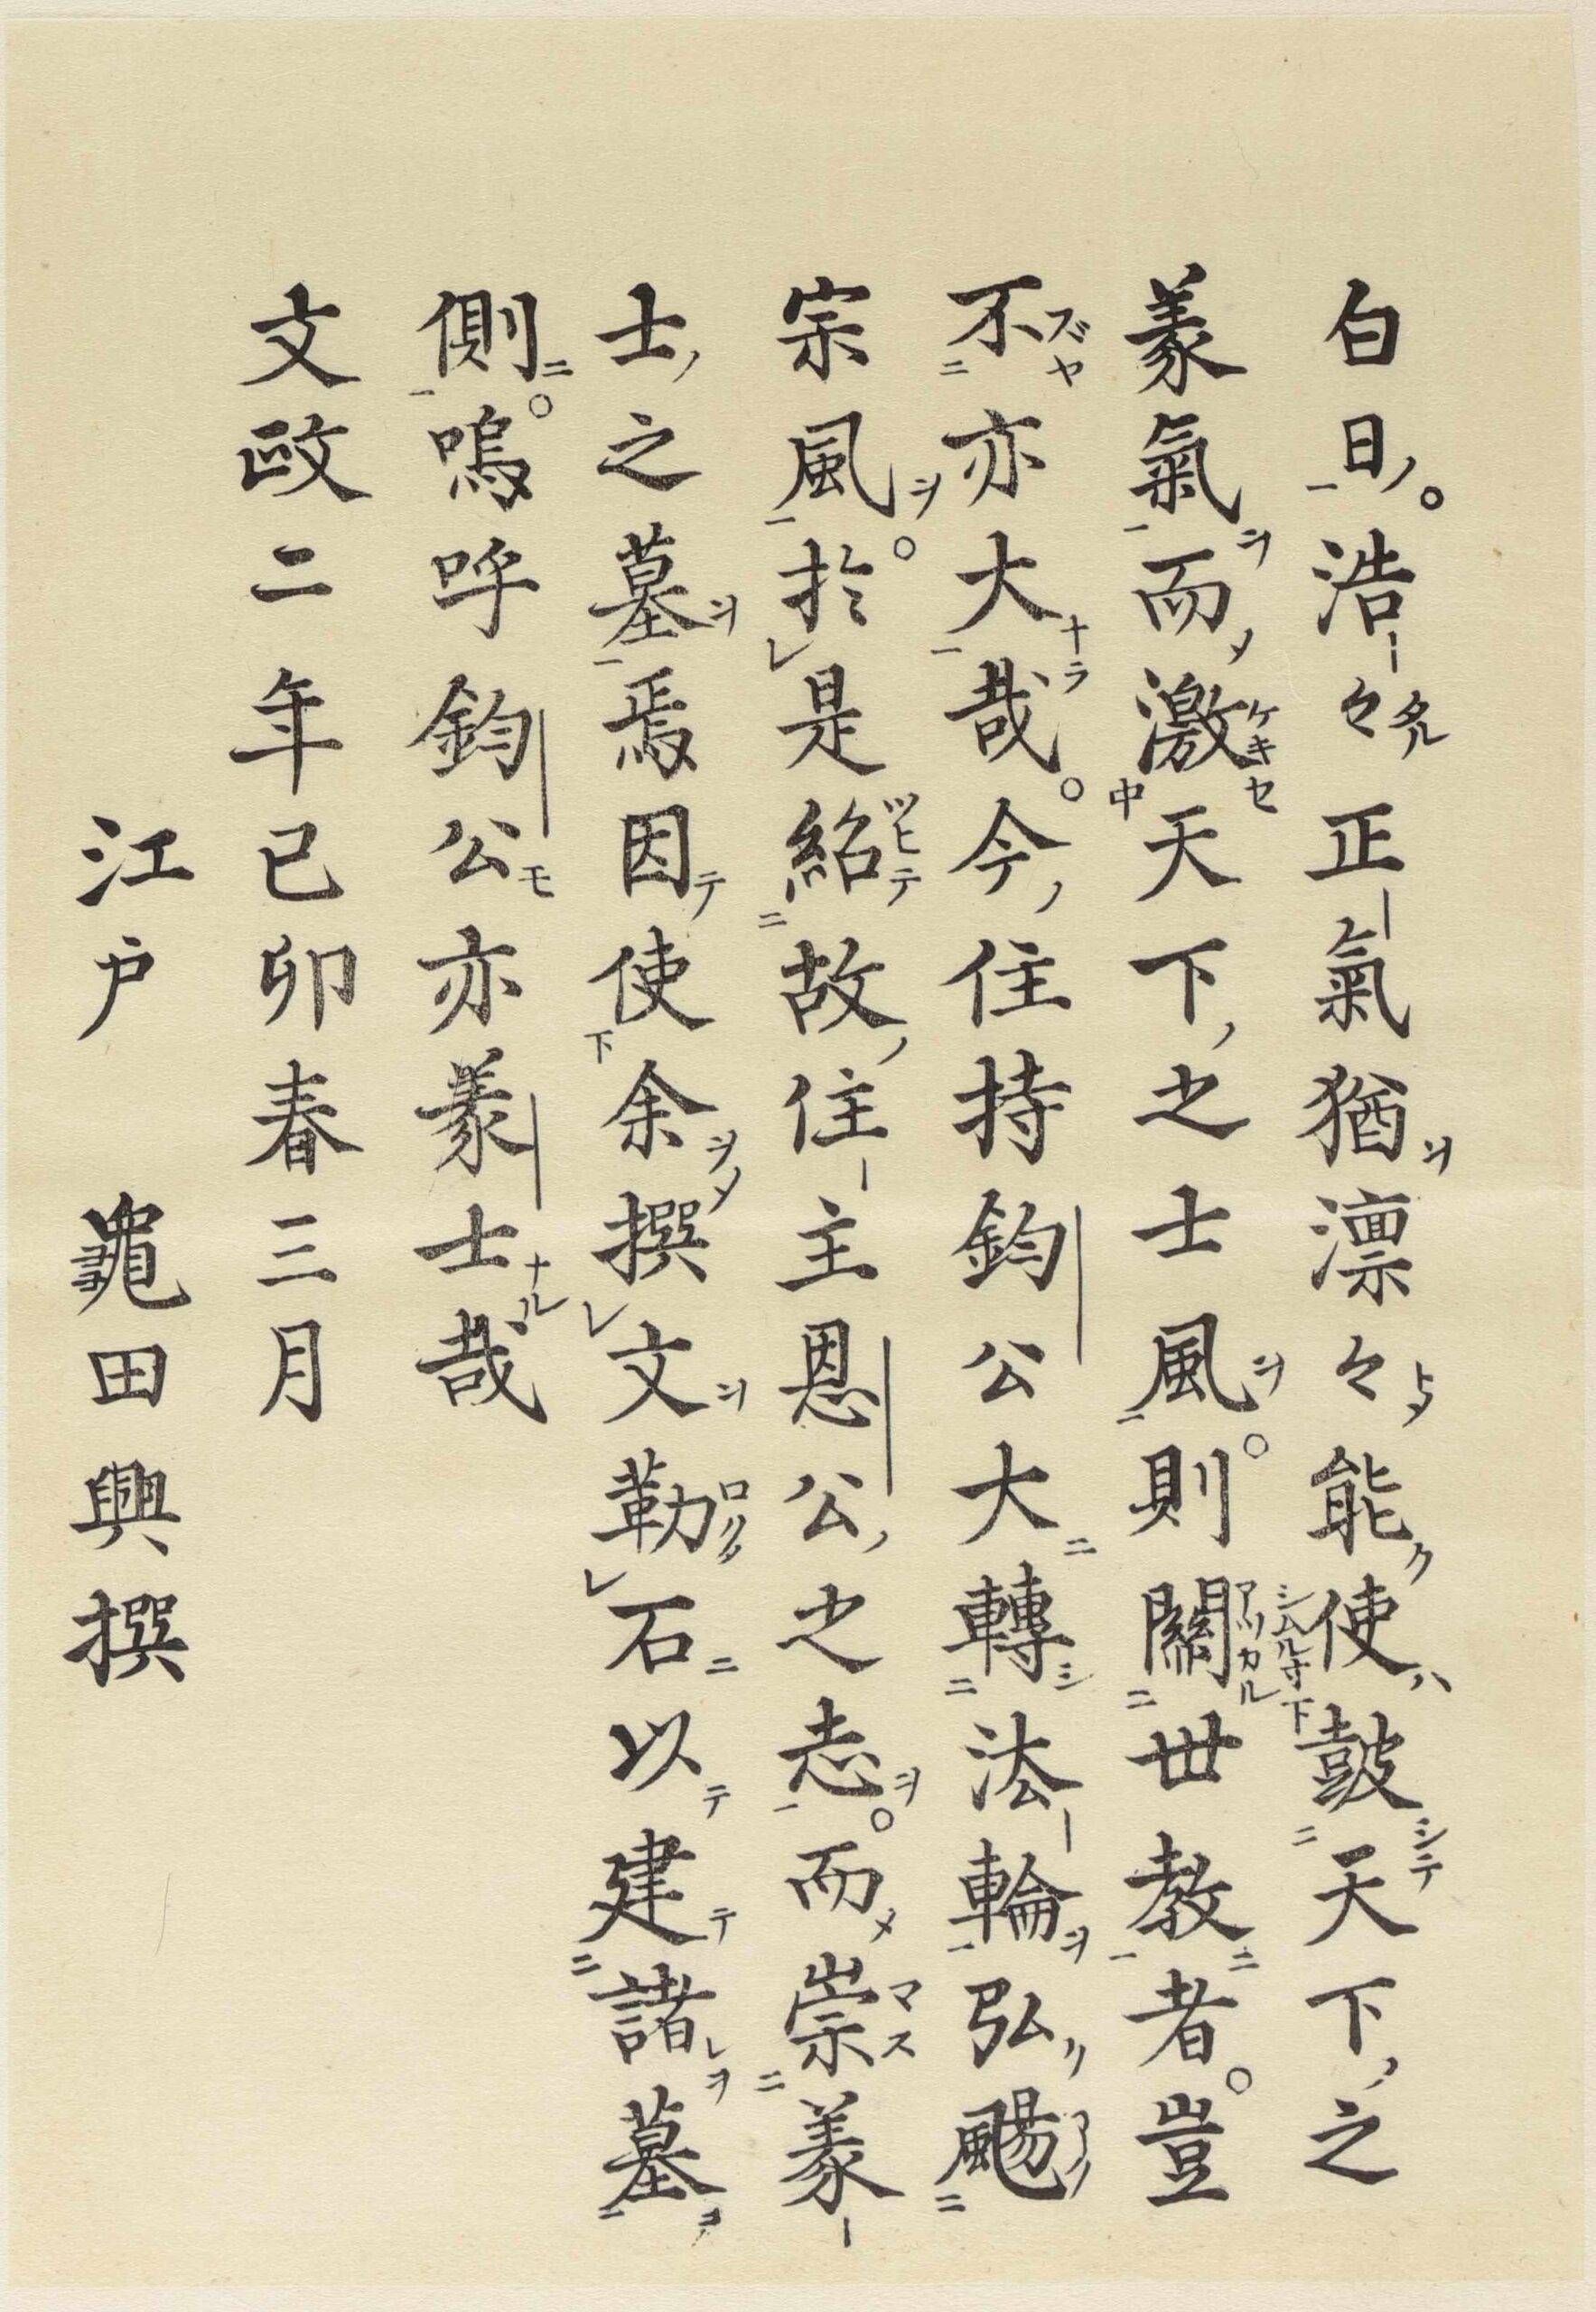 白日。浩々正氣猶凛々能使鼓天下之
義氣而激天下之士風。則關世教者。豈
不亦大哉。今住持鈞公大轉法輪弘颺
宗風。於是紹故住主恩公之志。而崇義
士之墓焉因使余撰文勒石以建諸墓
側。嗚呼鈞公亦義士哉
文政二年己卯春三月
江戸　龜田興撰